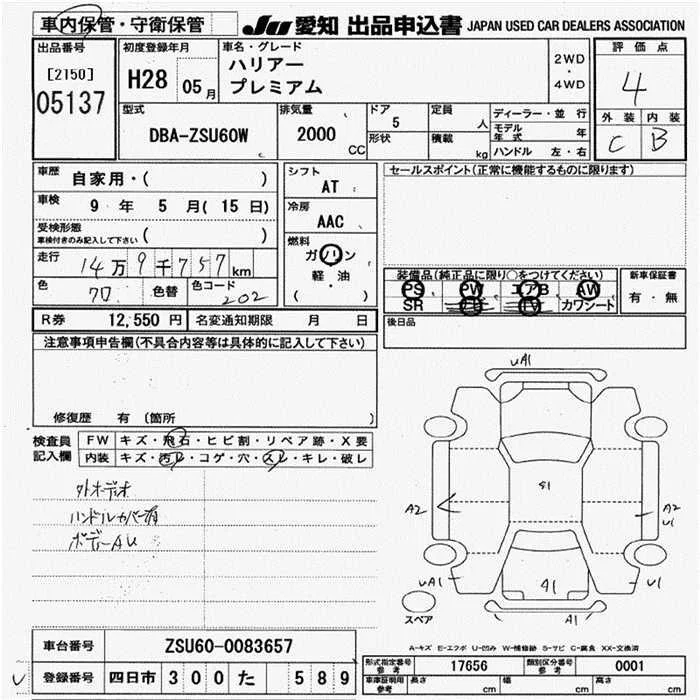 車内保管・守衛保管
JU 愛知 出品申込書 JAPAN USED CAR DEALERS ASSOCIATION
出品番号
[2150]
05137
初度登録年月
H28 05月
車名・グレード
ハリアー
プレミアム
2WD
・
4WD
評価点
4
外装 内装
C B
型式
DBA-ZSU60W
排気量
2000 CC
ドア
5
形状
定員
人
積載
kg
ディーラー・並行
モデル年式 年
ハンドル 左・右
車歴 自家用・( )
車検 9 年 5 月( 15 日)
受検形態
車検付きのみ記入して下さい ( )
走行 14万9千757km
色 クロ 色替 色コード 202
シフト
AT
冷房
AAC
燃料
ガソリン
軽・油
( )
セールスポイント(正常に機能するものに限ります)
装備品(純正品に限り○をつけてください)
PS PW エアB AW
SR TV カワシート
新車保証書
有・無
後日品
R券 12,550 円 名変通知期限 月 日
注意事項申告欄(不具合内容等は具体的に記入して下さい)
修復歴 有 (箇所 )
検査員
記入欄
FW キズ・飛石・ヒビ割・リペア跡・X要
内装 キズ・汚レ・コゲ・穴・スレ・キレ・破レ
外オーディオ
ハンドルカバー有
ボディーAU
UA1
S1
A2
A2
U1
UA1
A1
U1
A1
スペア
A-キズ E-エクボ U-凹み W-補修跡 S-サビ C-腐食 XX-交換済
車台番号 ZSU60-0083657
登録番号 四日市 300 た 589
形式指定番号
参考
17656
類別区分番号
参考
0001
車庫証明用
参考
長さ cm 幅 cm 高さ cm